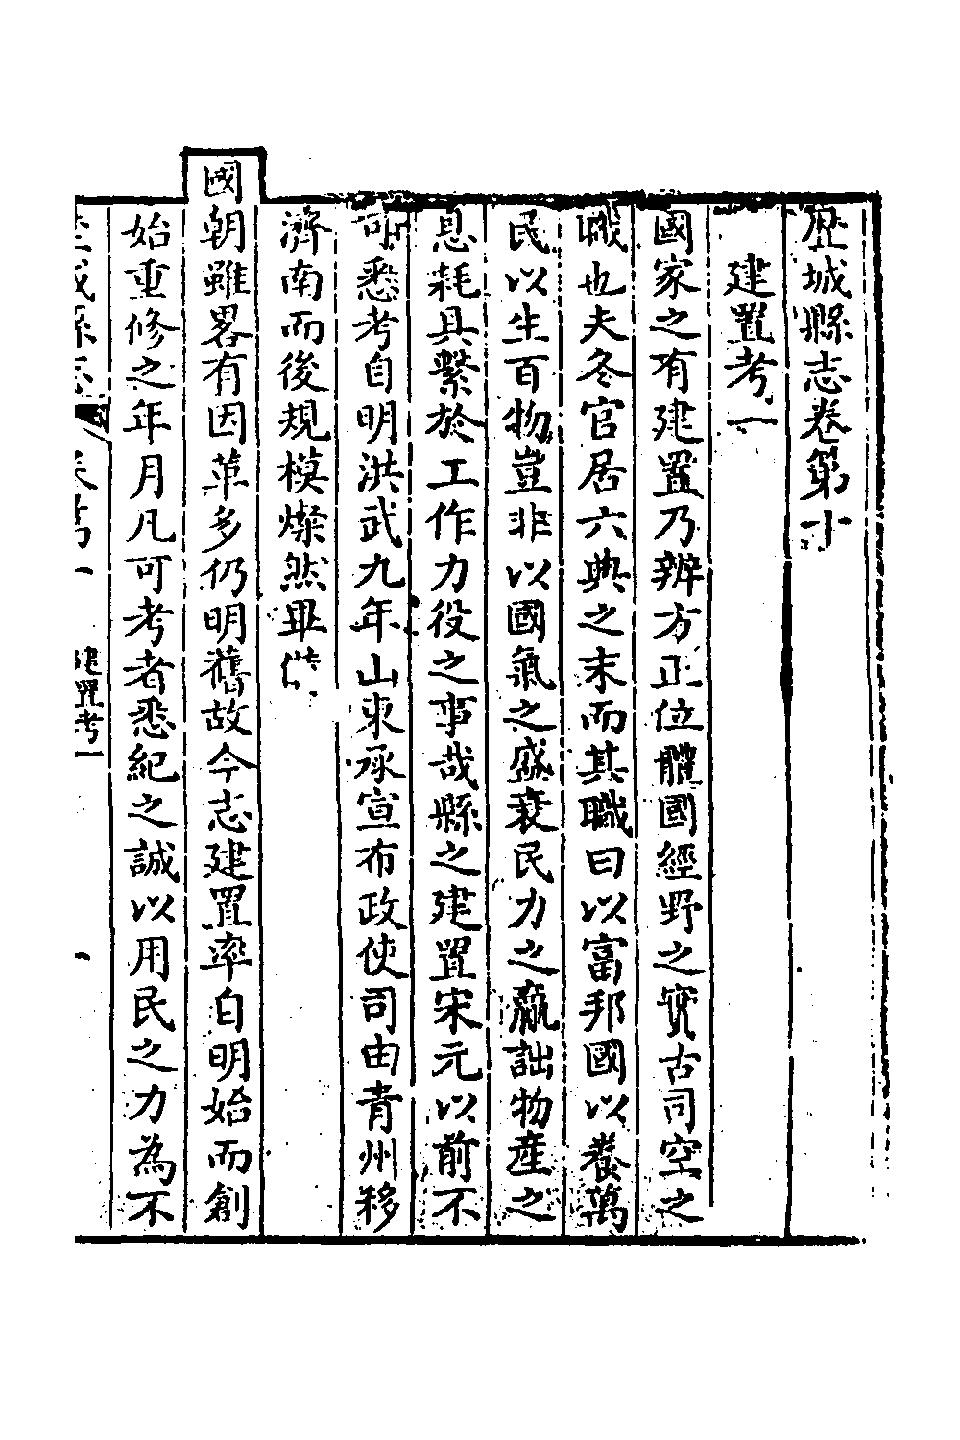 歴城縣志卷第十
建置考一
國家之有建置乃辨方正位體國經野之實古司空之
職也夫冬官居六典之末而其職曰以富邦國以養萬
民以生百物豈非以國氣之盛衰民力之羸詘物産之
息耗具繫於工作力役之事哉縣之建置宋元以前不
可悉考自明洪武九年山東承宣布政使司由青州移
濟南而後規模燦然畢備
國朝雖畧有因革多仍明舊故今志建置率自明始而創
始重修之年月凡可考者悉紀之誠以用民之力為不
建置考一